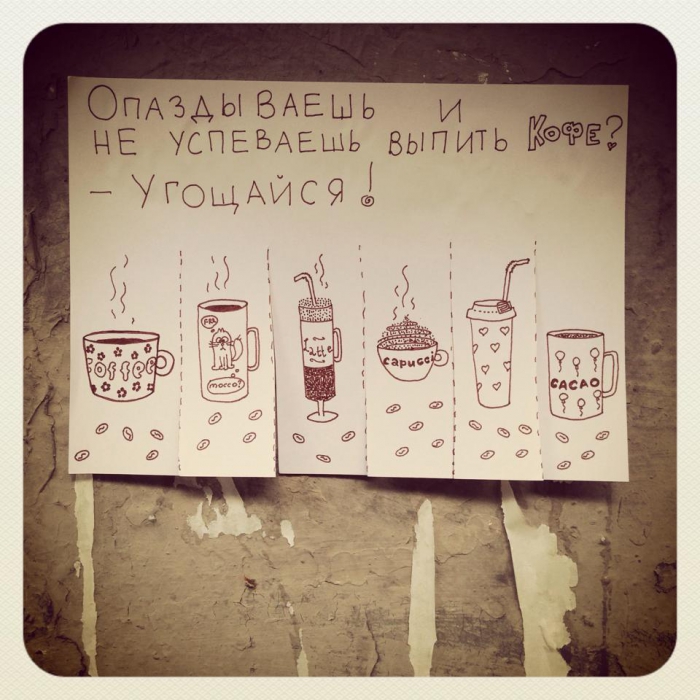 Опаздываешь и
не успеваешь выпить кофе?
– Угощайся!
coffee
FRR
mocco?
Latte
capucci
CACAO